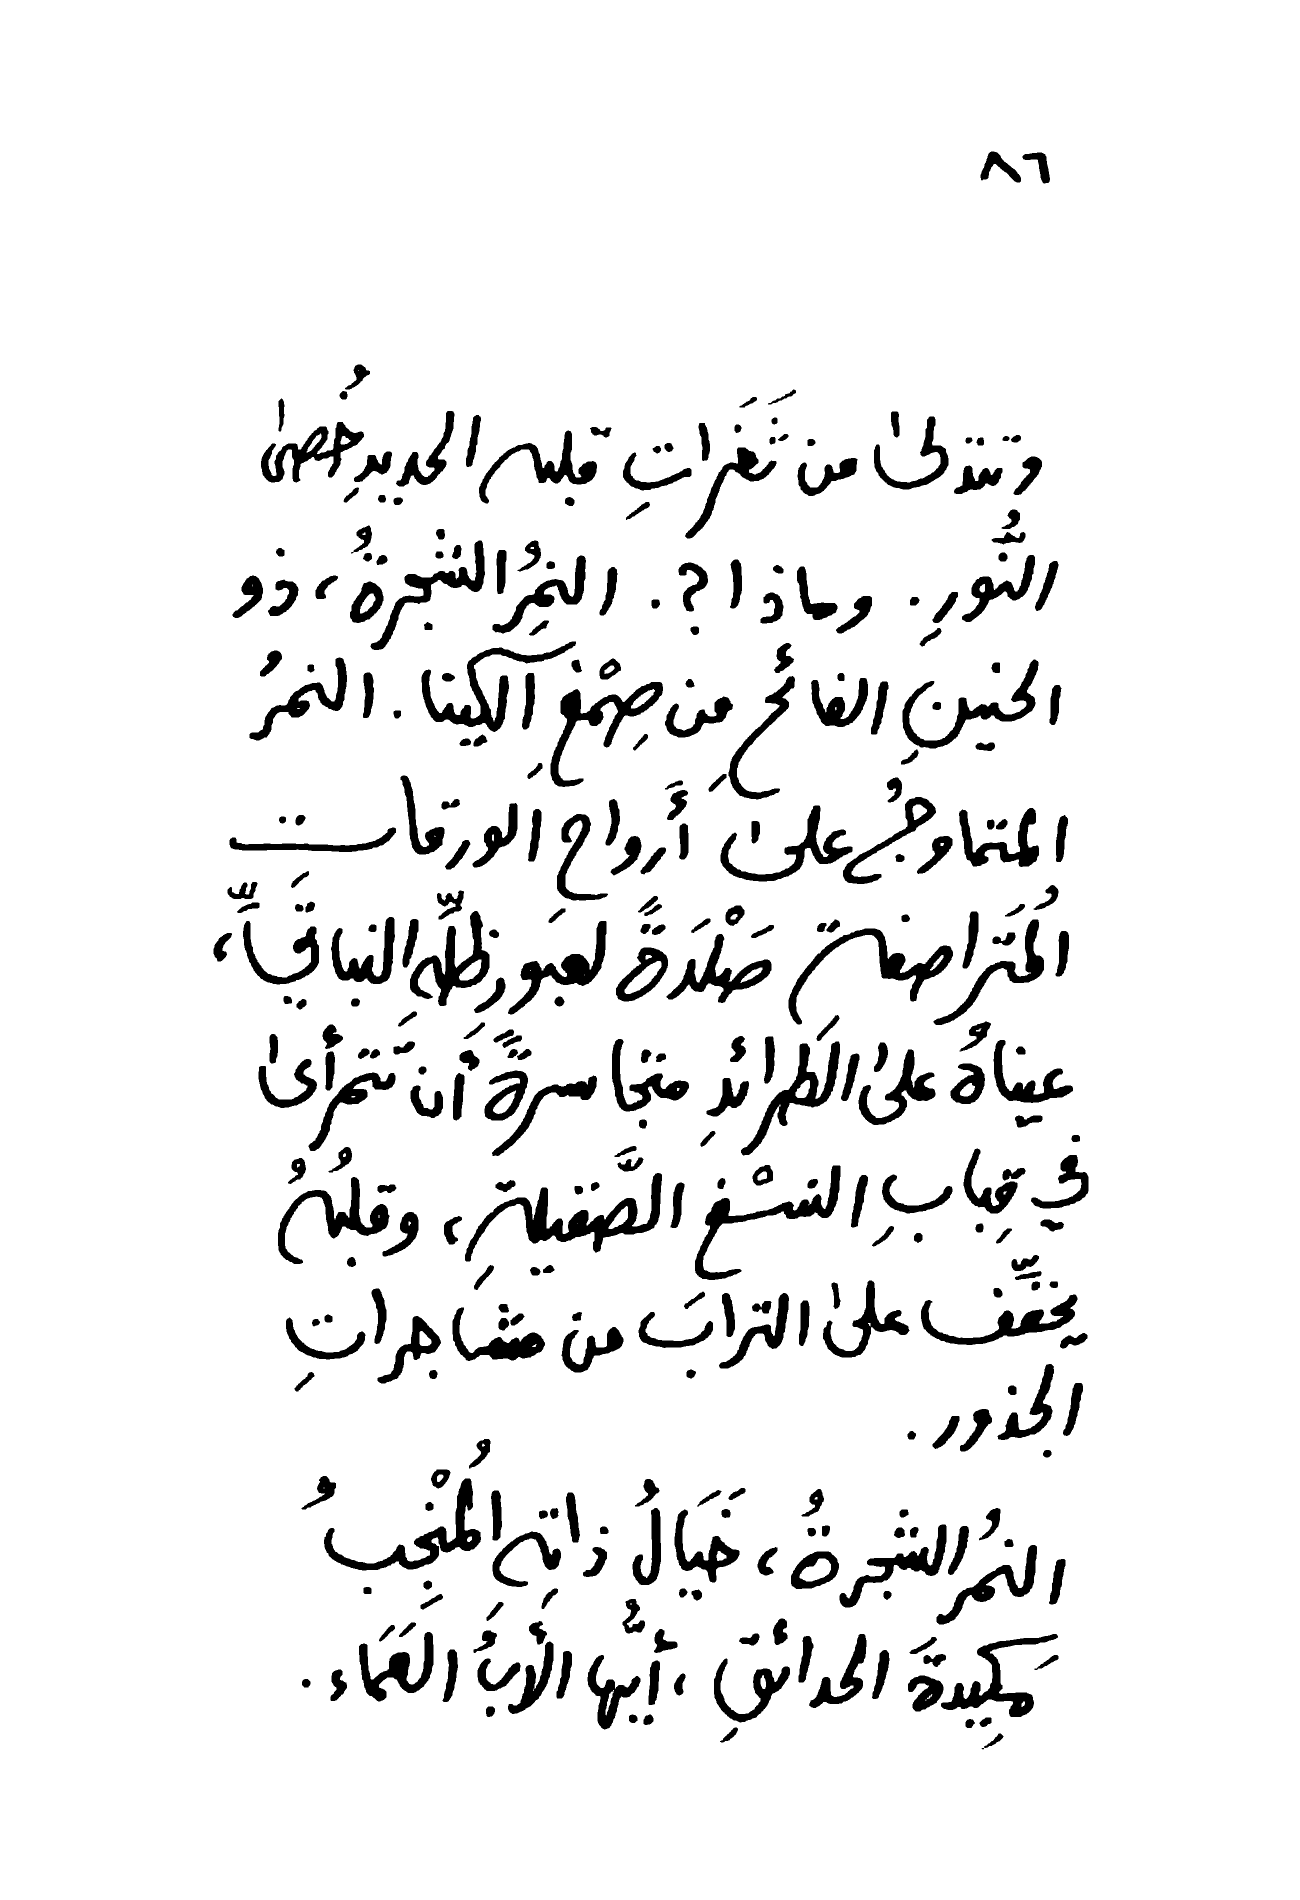 ٨٦
وتتدلىٰ من ثَغَراتِ قلبه الحديدِ خُصىٰ
النُّورِ. وماذا؟. النمِرُ الشجرةُ، ذو
الحنينِ الفائحِ من صِمْغِ آلكينا. النمرُ
المتماوجُ علىٰ أرواح الورقات
المُتَراصفة صَلْدَةً لعبور ظلِّهِ النباتيِّ،
عيناهُ علىٰ الطرائدِ متجاسرةً أن تتمرأىٰ
في قِبابِ النسْغ الصَّقيلةِ، وقلبُهُ
يخفِّف علىٰ الترابَ من مشاجراتِ
الجذور.
النمرُ الشجرةُ، خَيَالُ ذاته المُنْجِبُ
مَكِيدةَ الحدائقِ، أيُّها الأَبُ العَمَاء.